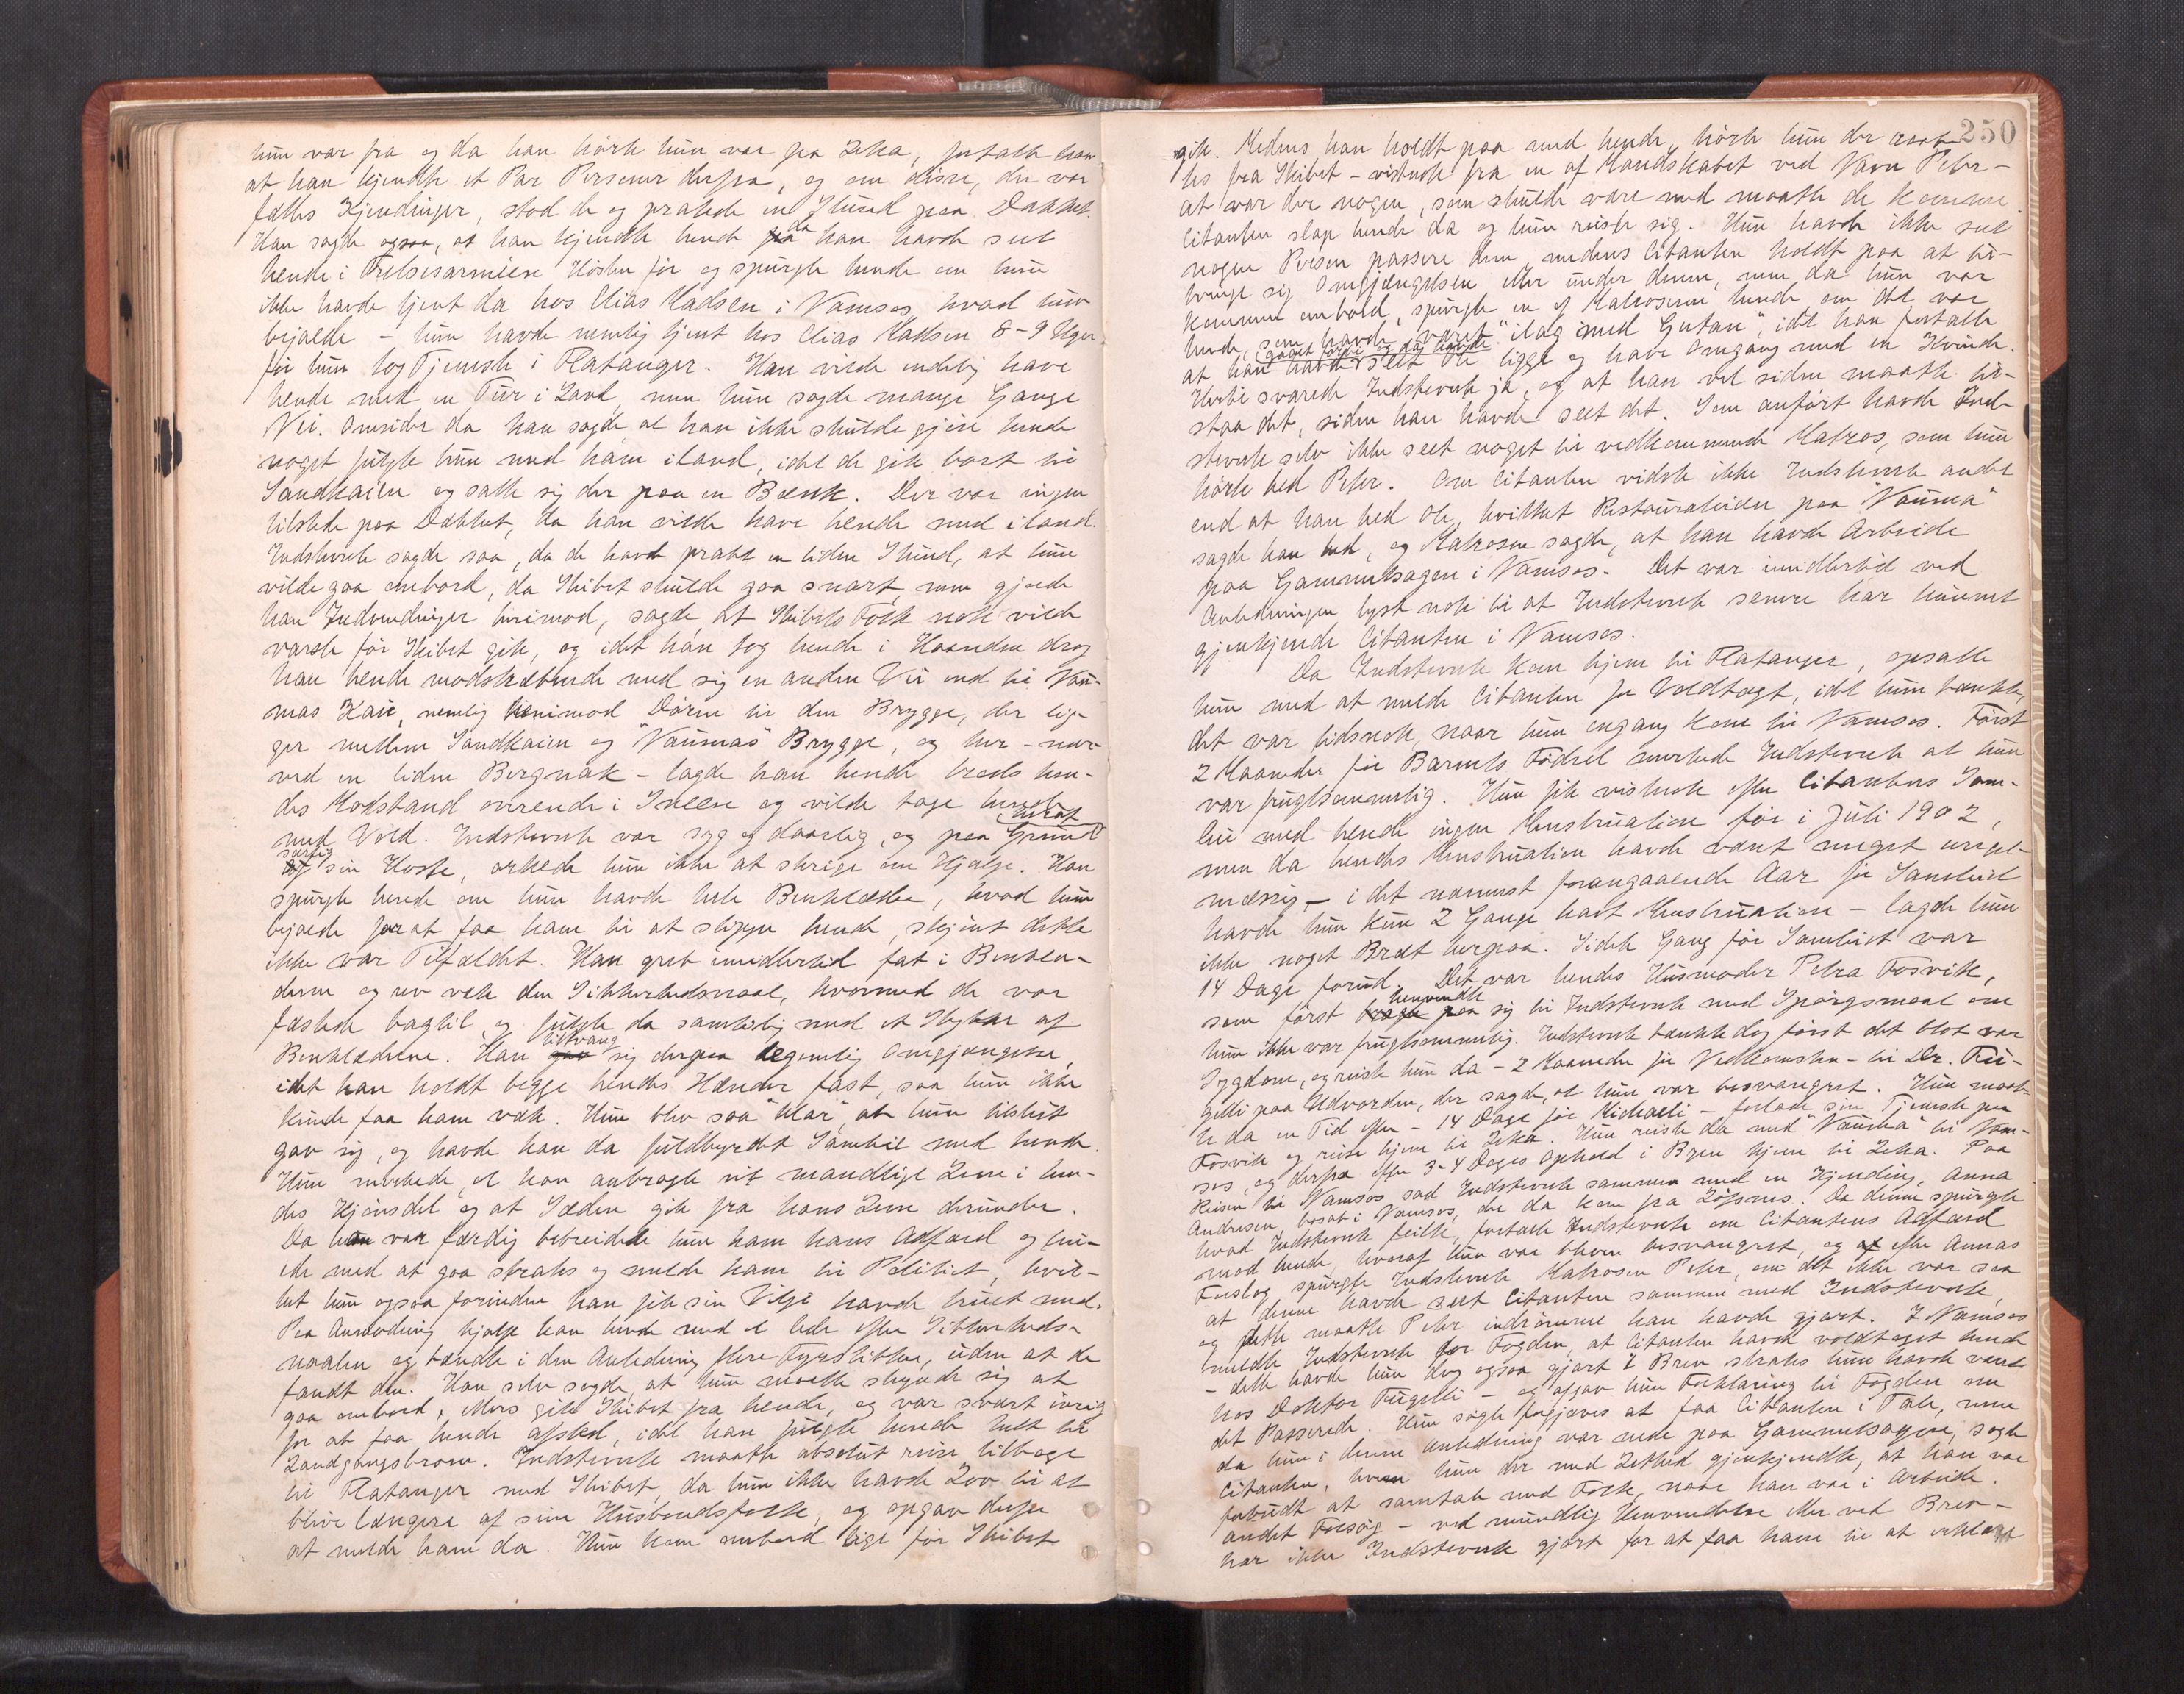 hun var fra og da han hørte hun var fra Leka, fortalte han
at han kjendte et Par Personer derfra, og om disse, der var
fælles Kjendinger, stod de og pratede en Stund paa Dækket.
Han sagde ogsaa, at han kjendte hende da han havde seet
hende i Frelsesarmeen Høsten før og spurgte hende om hun
ikke havde tjent da hos Elias Madsen i Namsos, hvad hun
bejaede – hun havde nemlig tjent hos Elias Madsen 8-9 Uger
før hun tog Tjeneste i Flatanger. Han vilde endelig have
hende med en Tur i Land, men hun sagde mange Gange
Nei. Omsider da han sagde at han ikke skulde gjøre hende
noget fulgte hun med ham iland, idet de gik bort til
Sandkaien og satte sig der paa en Bænk. Der var ingen
tilstede paa Dækket, da han vilde have hende med iland.
Indstevnte sagde saa, da de havde pratet en liden Stund, at hun
vilde gaa ombord, da Skibet skulde gaa snart, men gjorde
han Indvendinger herimod, sagde at Skibets Folk nok vilde
varsle før Skibet gik, og idet han tog hende i Haanden drog
han hende modstræbende med sig en anden Vei end til "Nau-
mas" Kaie, nemlig henimod Døren til den Brygge, der lig-
ger mellem Sandkaien og "Naumas" Brygge, og her – nær
ved en liden Bergnak – lagde han hende trods hen-
des Modstand overende i Sneen og vilde tage hende
med Vold. Indstevnte var syg og daarlig, og paa Grund
nærat
særlig af sin Hoste, orkede hun ikke at skrige om Hjælp. Han
spurgte hende om hun havde hele Benklæder, hvad hun
bejaede for at faa ham til at slippe hende, skjønt dette
ikke var Tilfældet. Han greb imidlertid fat i Benklæ-
derne og rev væk den Sikkerhedsnaal, hvormed de var
fæstede bagtil, og fulgte da samtidig med et Stykke af
Benklæderne. Han tiltvang sig derpaa legemlig Omgjængelse,
idet han holdt begge hendes Hænder fast, saa hun ikke
kunde faa ham væk. Hun blev saa "klar", at hun tilslut
gav sig, og havde han da fuldbyrdet Samleie med hende.
Hun merkede, at han anbragte sit mandlige Lem i hen-
des Kjønsdel og at Sæden gik fra hans Lem derunder.
Da han var færdig bebreidede hun ham hans Adfærd og tru-
ede med at gaa straks og melde ham til Politiet, hvil-
ket hun ogsaa forinden han fik sin Vilje havde truet med.
Paa Anmodning hjalp han hende med at lede efter Sikkerheds-
naalen og tændte i den Anledning flere Fyrstikker, uden at de
fandt den. Han selv sagde, at hun maatte skynde sig at
gaa ombord, ellers gik Skibet fra hende, og var svært ivrig
for at faa hende afsted, idet han fulgte hende helt til
Landgangsbroen. Indstevnte maatte absolut reise tilbage
til Flatanger med Skibet, da hun ikke havde Lov til at
blive længere af sine Husbondsfolk, og opgav derfor
at melde ham da. Hun kom ombord lige før Skibet
250
gik. Medens han holdt paa med hende, hørte hun der raab-
tes fra Skibet – vistnok fra en af Mandskabet ved Navn Peter –
at var der nogen, som skulde være med maatte de komme.
Citanten slap hende da og hun reiste sig. Hun havde ikke seet
nogen Person passere dem, medens Citanten holdt paa at til-
tvinge sig Omgjængelsen eller under denne, men da hun var
kommen ombord, spurgte en af Matroserne hende om det var
hende, som havde været "ilag med Gutan", idet han fortalte
at han gaaet forbi og da havde seet Ole ligge og have Omgang med en Kvinde.
Hertil svarede Indstevnte ja, og at han vel siden maatte til-
staa det, siden han havde seet det. Som anført havde Ind-
stevnte selv ikke seet noget til vedkommende Matros, som hun
hørte hed Peter. Om Citanten vidste ikke Indstevnte andet
end at han hed Ole, hvilket Restauratricen paa "Nauma"
sagde han hed, og Matrosen sagde, at han havde Arbeide
paa Gammelsagen i Namsos. Det var imidlertid ved
Anledningen lyst nok til at Indstevnte senere har kunnet
gjenkjende Citanten i Namsos.
Da Indstevnte kom hjem til Flatanger, opsatte
hun med at melde Citanten for Voldtægt, idet hun tænkte,
det var tidsnok, naar hun engang kom til Namsos. Først
2 Maaneder før Barnets Fødsel merkede Indstevnte at hun
var frugtsommelig. Hun fik vistnok efter Citantens Sam-
leie med hende ingen Menstruation før i Juli 1902,
men da hendes Menstruation havde været meget uregel-
mæssig – i det nærmest forangaaende Aar før Samleiet
havde hun kun 2 Gange havt Menstruation – lagde hun
ikke noget Bret herpaa. Sidste Gang før Samleiet var
14 Dage forud. Det var hendes Husmoder Petra Fosvik,
som først henvendte sig til Indstevnte med Spørgsmaal om
hun ikke var frugtsommelig. Indstevnte tænkte dog først det blot var
Sygdom, og reiste hun da – 2 Maaneder før Nedkomsten – til Dr. Fri-
gelli paa Utvorden, der sagde, at hun var besvangret. Hun maat-
te da en Tid efter – 14 Dage før Michaeli – forlade sin Tjeneste paa
Fosvik og reise hjem til Leka. Hun reiste da med "Nauma" til Nam-
sos, og derfra efter 3-4 Dages Ophold i Byen hjem til Leka. Paa
Reisen til Namsos sad Indstevnte sammen med en Kjending, Anna
Andresen, bosat i Namsos, der da kom fra Løfsnes. Da denne spurgte
hvad Indstevnte feilte, fortalte Indstevnte om Citantens Adfærd
mod hende, hvoraf hun var bleven besvangret, og efter Annas
Forslag spurgte Indstevnte Matrosen Peter, om det ikke var saa
at denne havde seet Citanten sammen med Indstevnte,
og dette maatte Peter indrømme han havde gjort. I Namsos
meldte Indstevnte for Fogden, at Citanten havde voldtaget hende
– dette havde hun dog ogsaa gjort i Brev straks hun havde været
hos Doktor Frigelli – og afgav hun Forklaring til Fogden om
det Passerede. Hun søgte forgjæves at faa Citanten i Tale, men
da hun i denne Anledning var nede paa Gammelsagen, sagde
Citanten, hvem hun der med Lethed gjenkjendte, at han var
forbudt at samtale med Folk, naar han var i Arbeide.
Andet Forsøg – ved mundtlig Henvendelse eller ved Brev –
har ikke Indstevnte gjort for at faa ham til at erklære